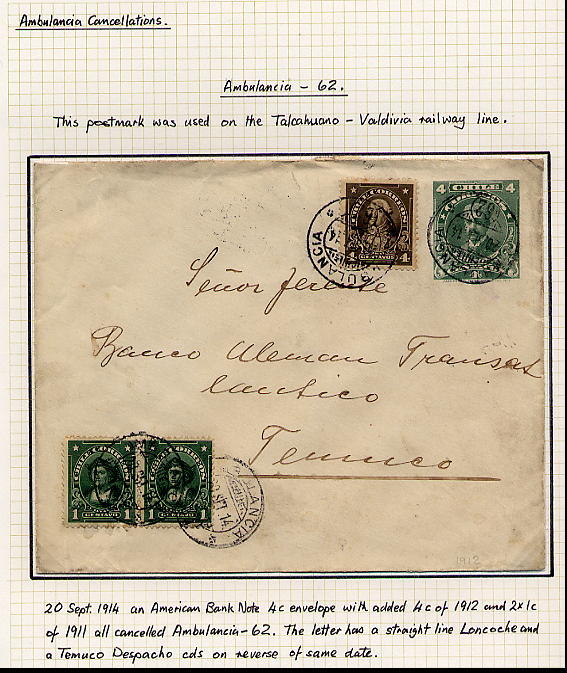 Ambulancia Cancellations.
Ambulancia – 62.
This postmark was used on the Talcahuano – Valdivia railway line.
4 CHILE 4
CHILE CORREOS
4 CENTAVOS 4
AMBULANCIA
Señor Jerente
Banco Aleman Transat
lantico
Temuco
CHILE CORREOS
CHILE CORREOS
1 CENTAVO 1
1 CENTAVO 1
AMBULANCIA
SET 14
1912
20 Sept. 1914 an American Bank Note 4c envelope with added 4c of 1912 and 2x1c
of 1911 all cancelled Ambulancia-62. The letter has a straight line Loncoche and
a Temuco Despacho cds on reverse of same date.